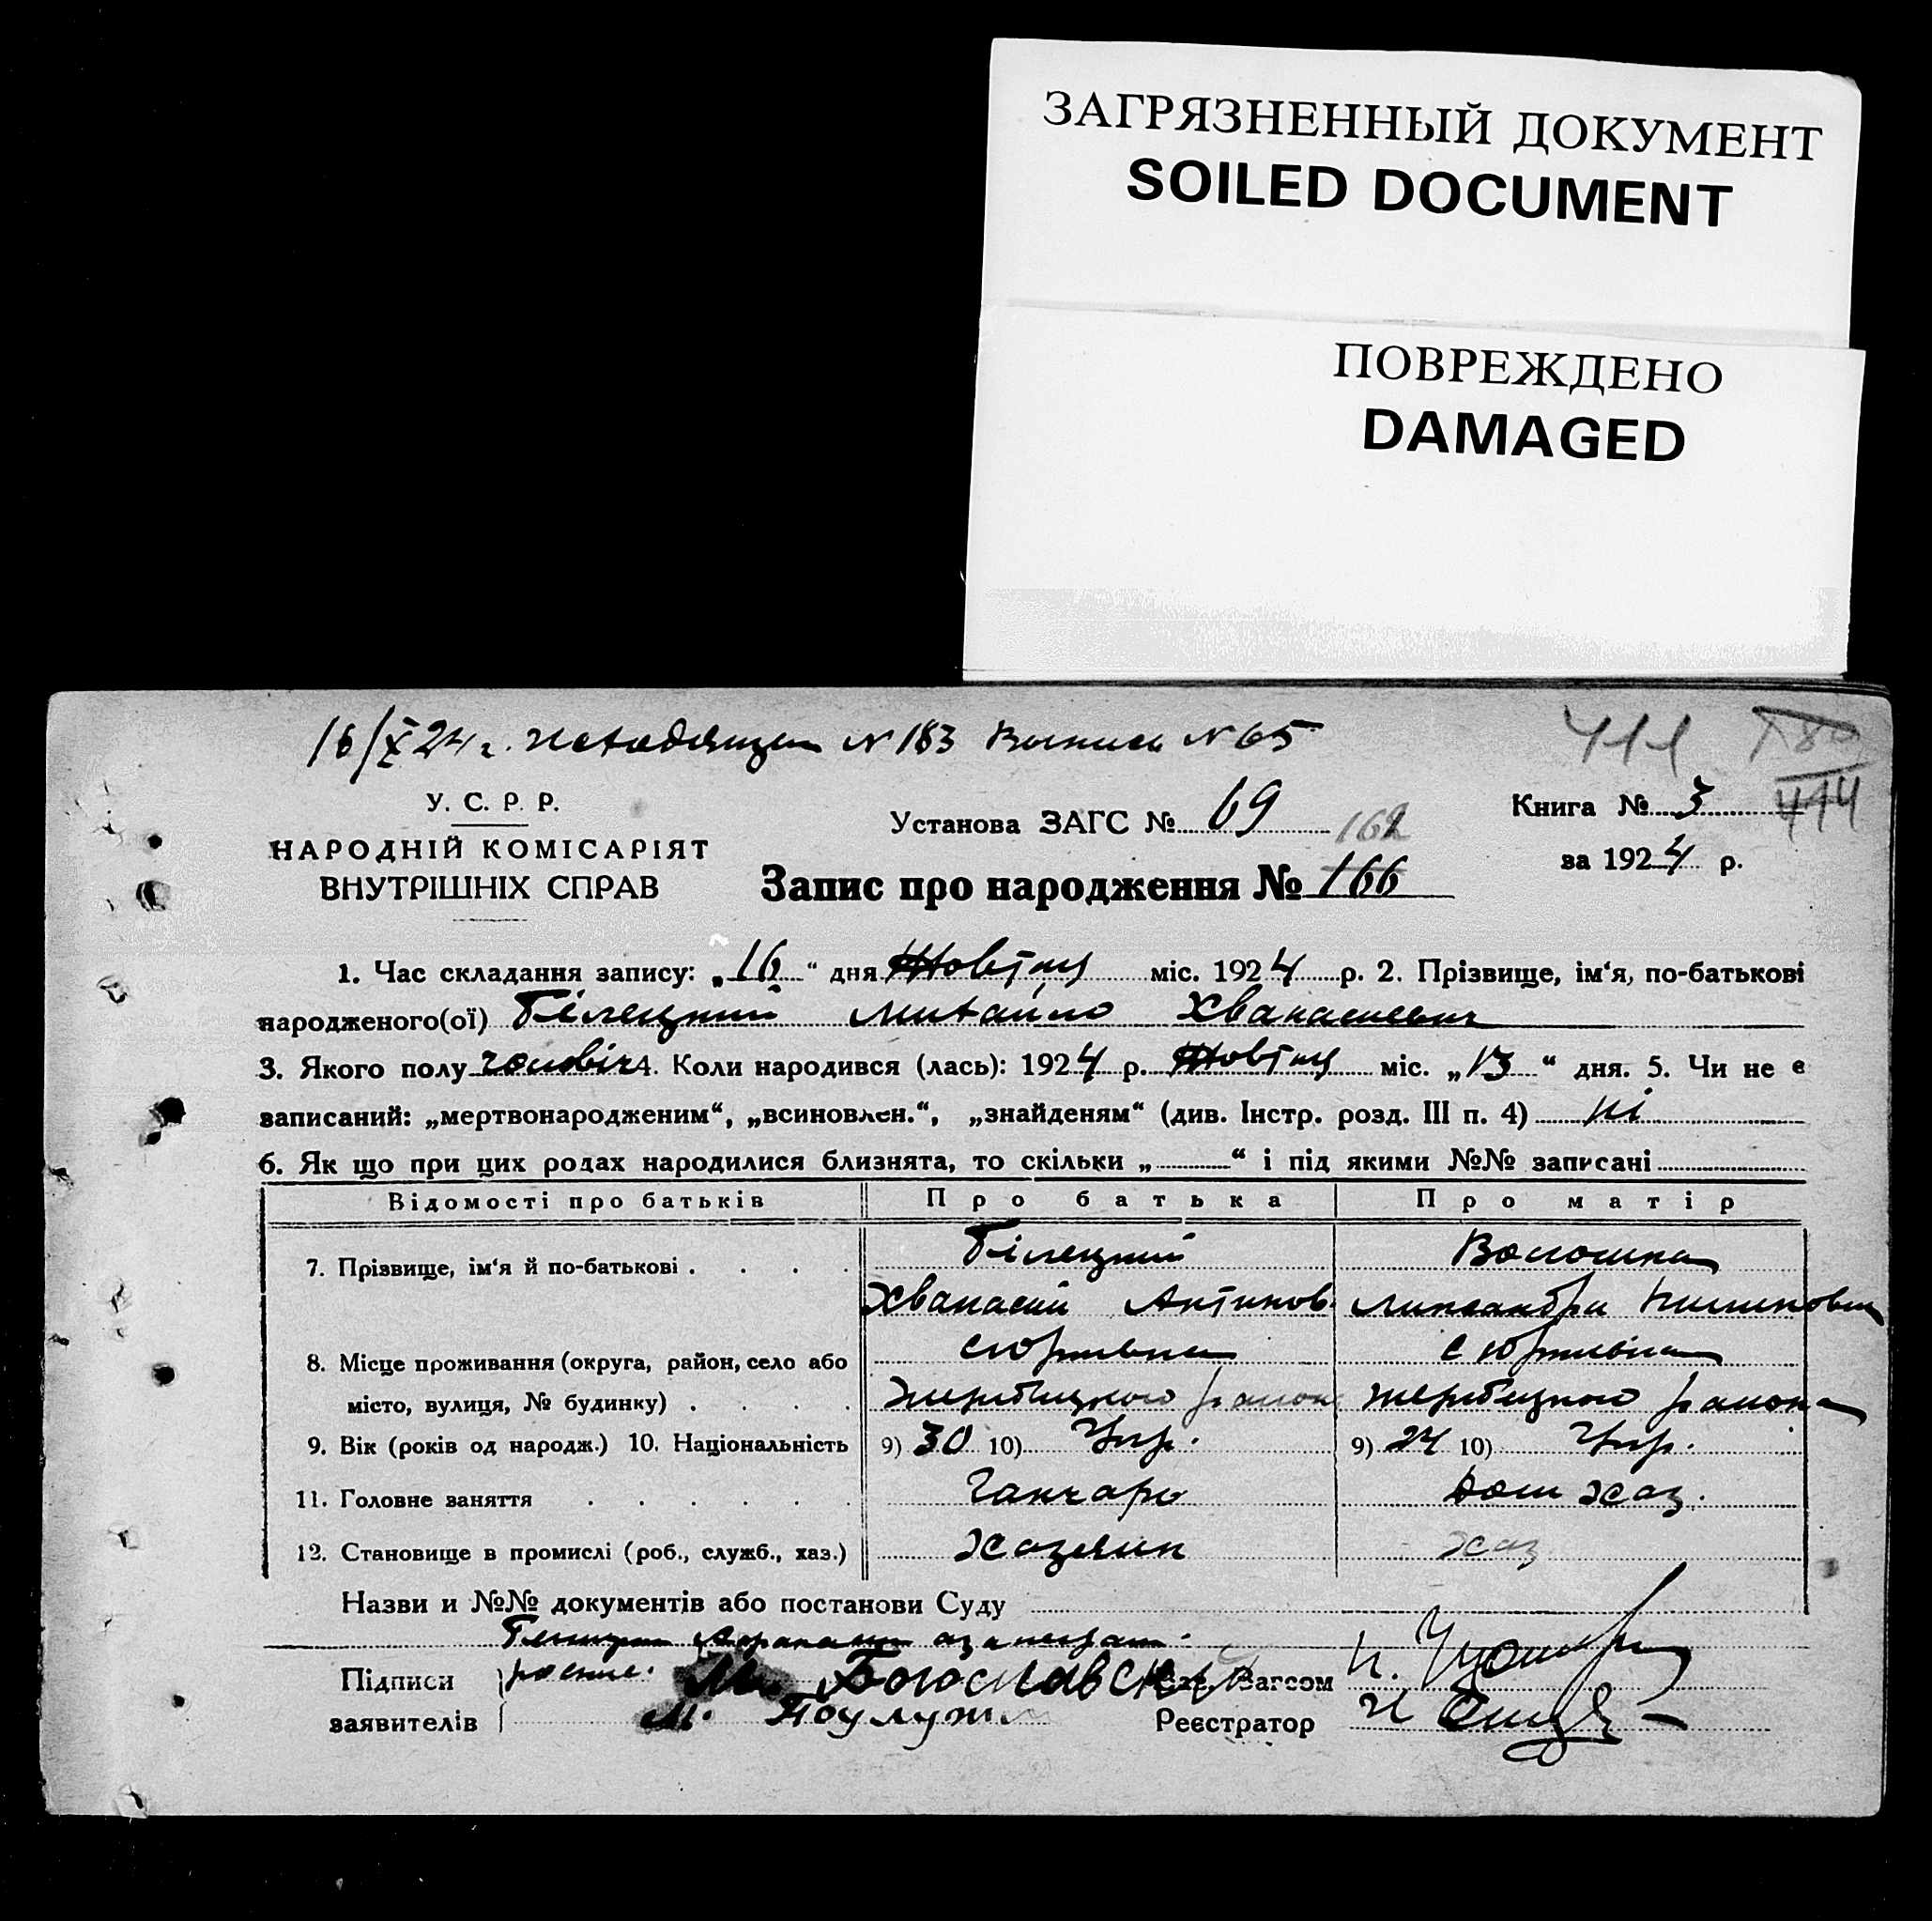 ЗАГРЯЗНЕННЫЙ ДОКУМЕНТ
SOILED DOCUMENT
ПОВРЕЖДЕНО
DAMAGED
16/X 24 г. № 183 Выпись № 65
411
У. С. Р. Р.
НАРОДНІЙ КОМІСАРІЯТ
ВНУТРІШНІХ СПРАВ
Установа ЗАГС № 69
162
Запис про народження № 166
Книга № 3 414
за 1924 р.
1. Час складання запису: „16“ дня Жовтня міс. 1924 р. 2. Прізвище, ім‘я, по-батькові
народженого(ої) Білецкий Михайло Хванасиевич
3. Якого полу чоловіч 4. Коли народився (лась): 1924 р. Жовтня міс. „13“ дня. 5. Чи не є
записаний: „мертвонародженим“, „всиновлен.“, „знайденям“ (див. Інстр. розд. III п. 4) ні
6. Як що при цих родах народилися близнята, то скільки „ “ і під якими №№ записані
Відомості про батьків Про батька Про матір
7. Прізвище, ім‘я й по-батькові Білецкий Волошка
Хванасий Антинов
8. Місце проживання (округа, район, село або с Юрківка с Юрківка
місто, вулиця, № будинку) Жеребецкого района Жеребецкого района
9. Вік (років од народж.) 10. Національність 9) 30 10) Укр. 9) 24 10) Укр.
11. Головне заняття Ганчарь Дом хаз.
12. Становище в промислі (роб., служб., хаз.) Хазяин хаз
Назви и №№ документів або постанови Суду
Підписи М. Богославский Загсом
заявителів М. Реєстратор